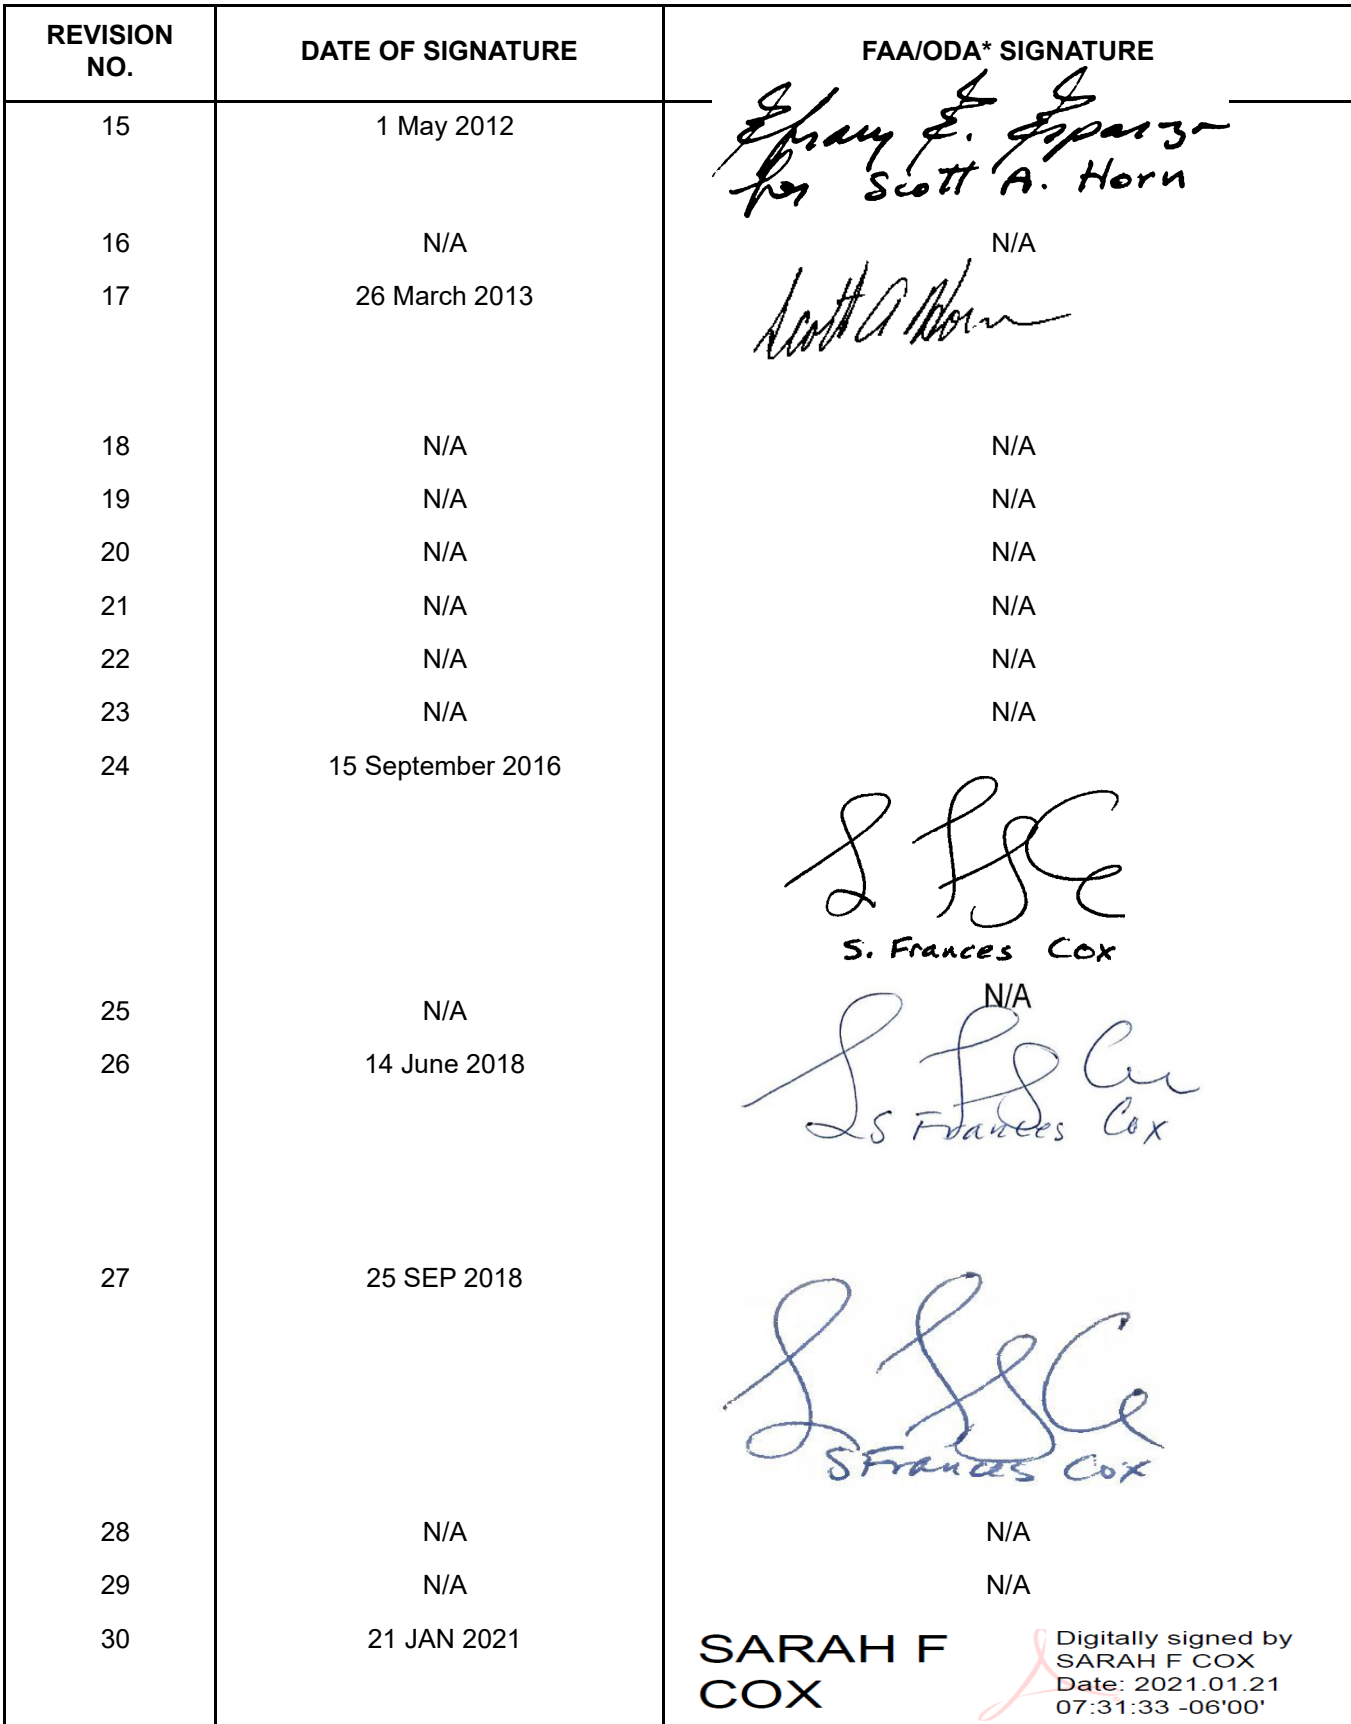 REVISION NO. DATE OF SIGNATURE FAA/ODA* SIGNATURE
15 1 May 2012 Efrain E. Esparza
for Scott A. Horn
16 N/A N/A
17 26 March 2013 Scott A Horn
18 N/A N/A
19 N/A N/A
20 N/A N/A
21 N/A N/A
22 N/A N/A
23 N/A N/A
24 15 September 2016
S. Frances Cox
25 N/A N/A
26 14 June 2018
S Frances Cox
27 25 SEP 2018
S Frances Cox
28 N/A N/A
29 N/A N/A
30 21 JAN 2021 SARAH F COX
Digitally signed by
SARAH F COX
Date: 2021.01.21
07:31:33 -06'00'